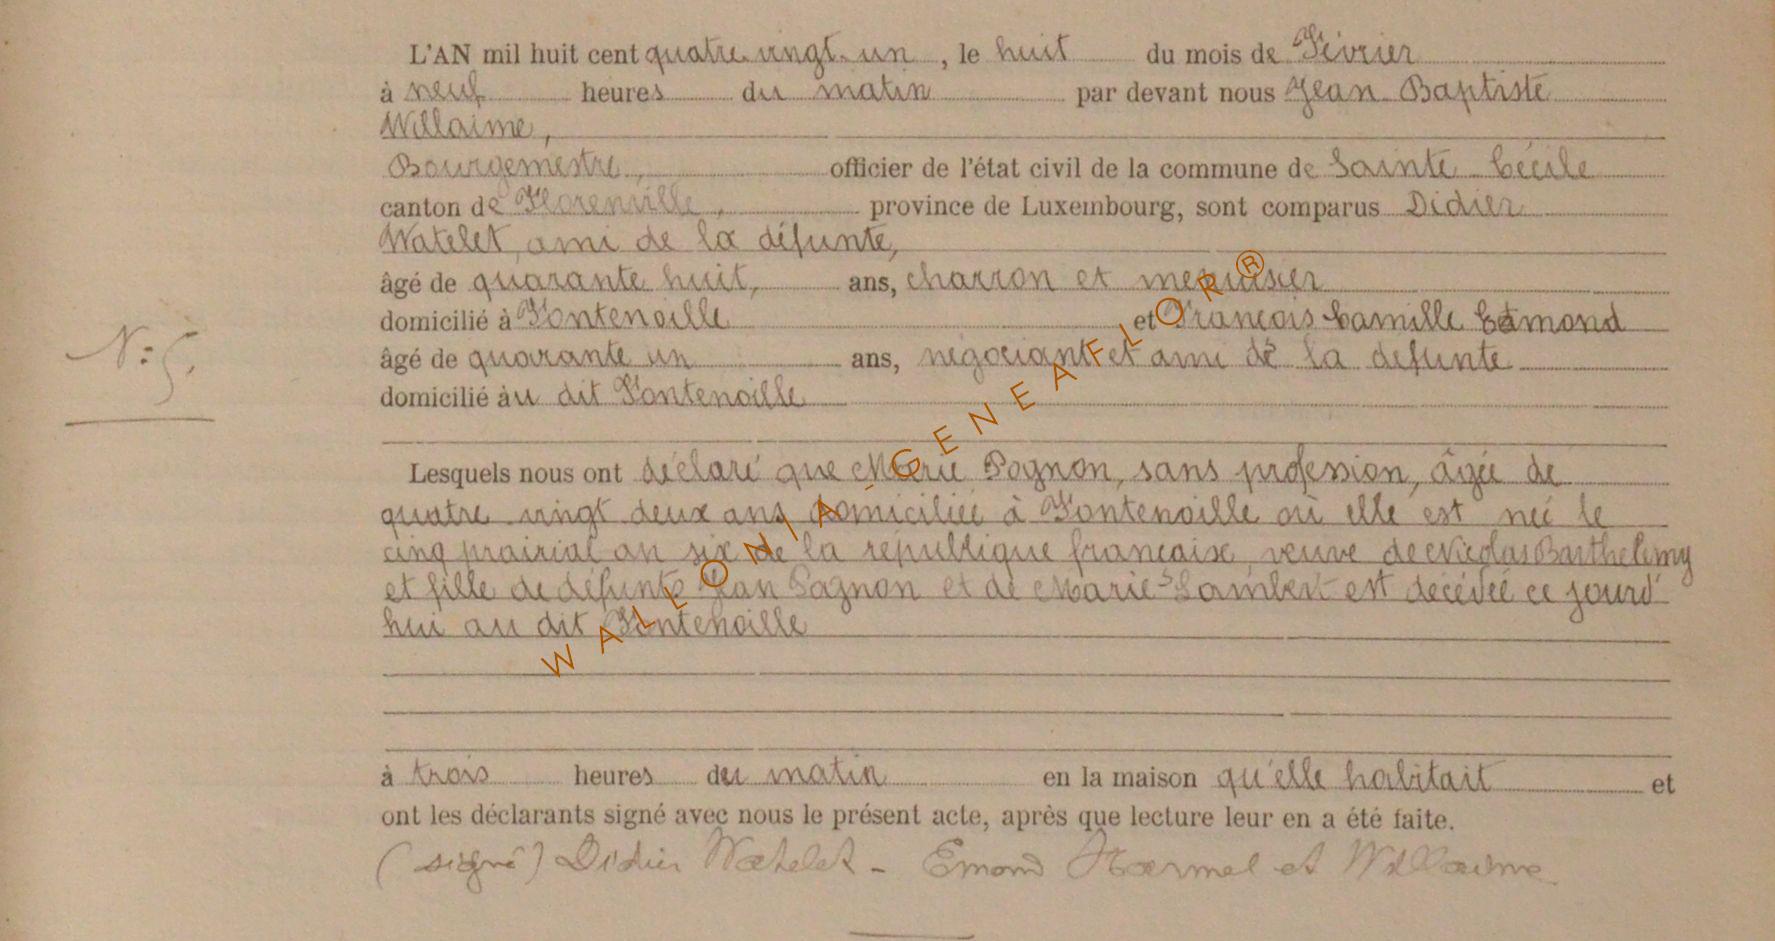 L'AN mil huit cent quatre vingt un, le huit du mois de Février
à neuf heures du matin par devant nous Jean Baptiste
Willaime,
Bourgemestre, officier de l'état civil de la commune de Sainte Cécile
canton de Florenville, province de Luxembourg, sont comparus Didier
Watelet, ami de la défunte,
âgé de quarante huit, ans, charron et menuisier
domicilié à Fontenoille et François Camille Edmond
N° 5.
âgé de quarante un ans, négociant et ami de la defunte
domicilié àu dit Fontenoille
Lesquels nous ont déclaré que Marie Pognon, sans profession, âgée de
quatre vingt deux ans domiciliée à Fontenoille où elle est née le
cinq prairial an six de la republique française, veuve de Nicolas Barthelemy
et fille de défunts Jean Pognon et de Marie Lambert est décédée ce jourd'
hui au dit Fontenoille
à trois heures du matin en la maison qu'elle habitait et
ont les déclarants signé avec nous le présent acte, après que lecture leur en a été faite.
(signé) Didier Watelet - Emond Harmel et Willaime
WALLONIA-GENEAFLOR®